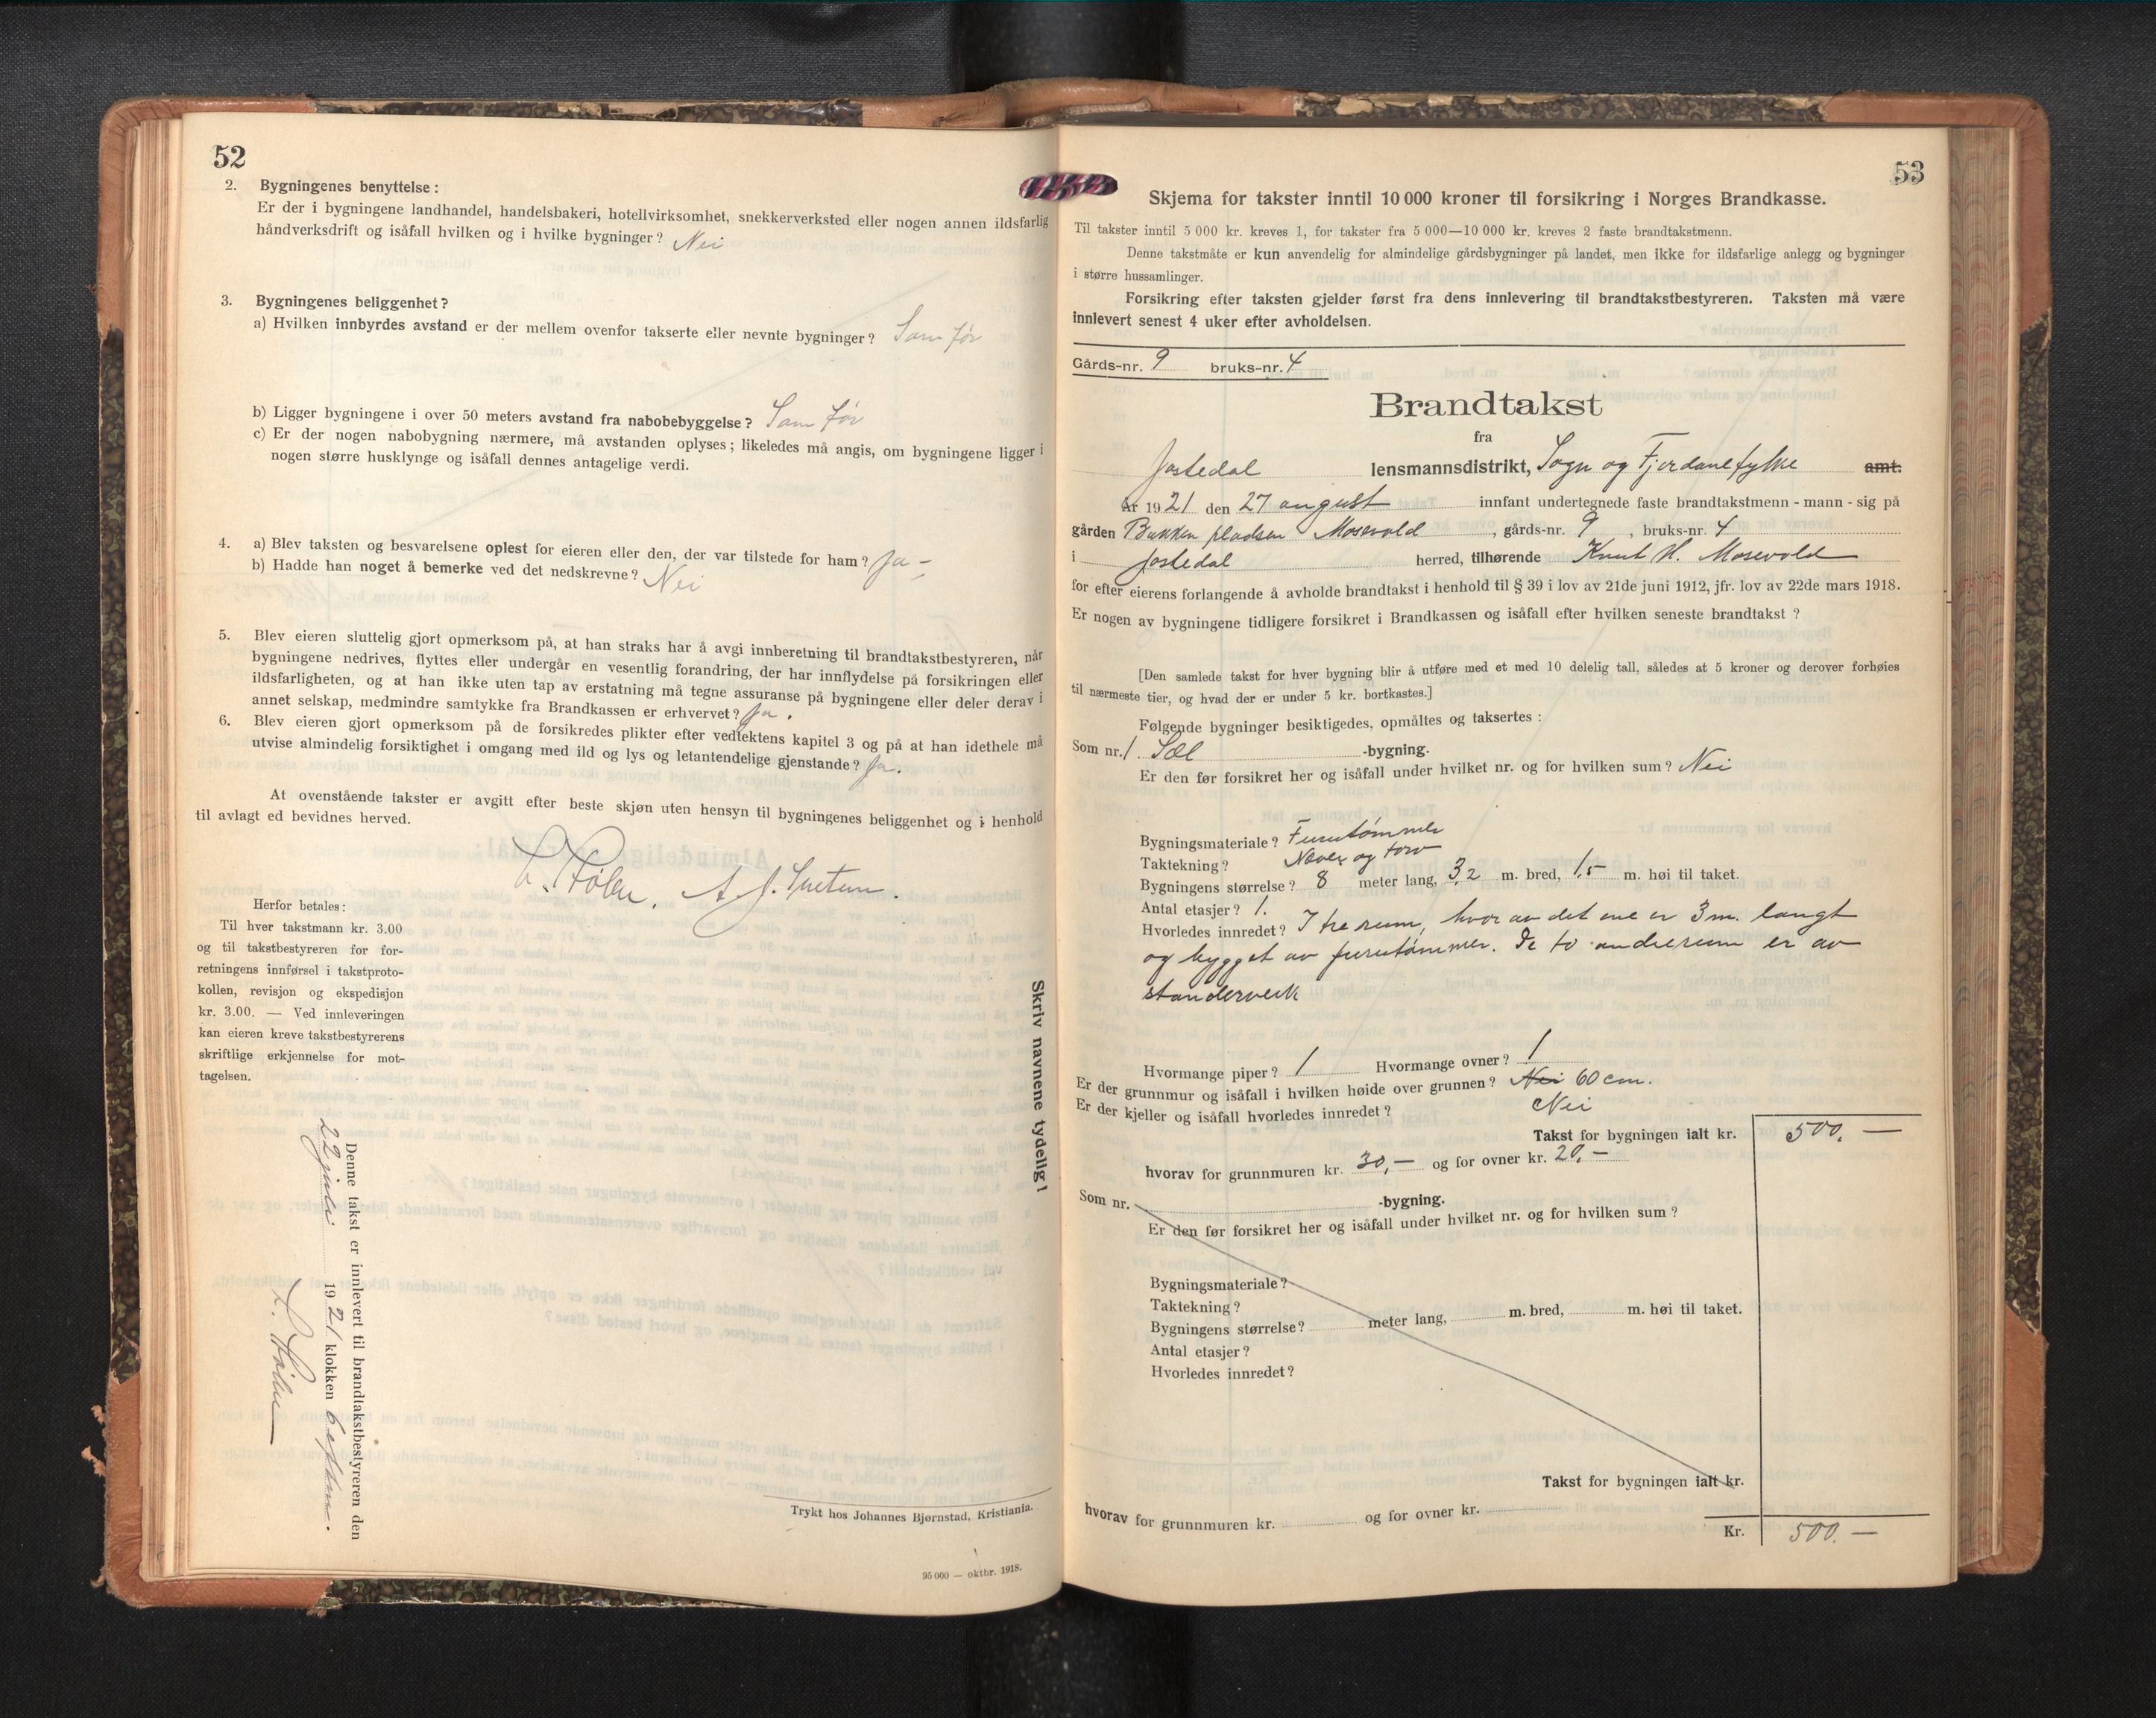 52
2. Bygningenes benyttelse:
Er der i bygningene landhandel, handelsbakeri, hotellvirksomhet, snekkerverksted eller nogen annen ildsfarlig
håndverksdrift og isåfall hvilken og i hvilke bygninger? Nei
3. Bygningenes beliggenhet?
a) Hvilken innbyrdes avstand er der mellem ovenfor takserte eller nevnte bygninger? Som før
b) Ligger bygningene i over 50 meters avstand fra nabobebyggelse? Som før
c) Er der nogen nabobygning nærmere, må avstanden oplyses; likeledes må angis, om bygningene ligger i
nogen større husklynge og isåfall dennes antagelige verdi.
4. a) Blev taksten og besvarelsene oplest for eieren eller den, der var tilstede for ham? Ja –
b) Hadde han noget å bemerke ved det nedskrevne? Nei
5. Blev eieren sluttelig gjort opmerksom på, at han straks har å avgi innberetning til brandtakstbestyreren, når
bygningene nedrives, flyttes eller undergår en vesentlig forandring, der har innflydelse på forsikringen eller
ildsfarligheten, og at han ikke uten tap av erstatning må tegne assuranse på bygningene eller deler derav i
annet selskap, medmindre samtykke fra Brandkassen er erhvervet? Ja.
6. Blev eieren gjort opmerksom på de forsikredes plikter efter vedtektens kapitel 3 og på at han idethele må
utvise almindelig forsiktighet i omgang med ild og lys og letantendelige gjenstande? Ja.
At ovenstående takster er avgitt efter beste skjøn uten hensyn til bygningenes beliggenhet og i henhold
til avlagt ed bevidnes herved.
Herfor betales:
Til hver takstmann kr. 3.00
og til takstbestyreren for for-
retningens innførsel i takstproto-
kollen, revisjon og ekspedisjon
kr. 3.00. — Ved innleveringen
kan eieren kreve takstbestyrerens
skriftlige erkjennelse for mot-
tagelsen.
Skriv navnene tydelig!
Denne takst er innlevert til brandtakstbestyreren den
22 juli 1921 klokken 6 eftm.
Trykt hos Johannes Bjørnstad, Kristiania.
95 000 — oktbr. 1918.
53
Skjema for takster inntil 10 000 kroner til forsikring i Norges Brandkasse.
Til takster inntil 5 000 kr. kreves 1, for takster fra 5 000—10 000 kr. kreves 2 faste brandtakstmenn.
Denne takstmåte er kun anvendelig for almindelige gårdsbygninger på landet, men ikke for ildsfarlige anlegg og bygninger
i større hussamlinger.
Forsikring efter taksten gjelder først fra dens innlevering til brandtakstbestyreren. Taksten må være
innlevert senest 4 uker efter avholdelsen.
Gårds-nr. 9 bruks-nr. 4
Brandtakst
fra
Jostedal lensmannsdistrikt, Sogn og Fjordane fylke amt.
År 1921 den 27 august innfant undertegnede faste brandtakstmenn - mann - sig på
gården Bakken pladsen Mosevold, gårds-nr. 9, bruks-nr. 4
i Jostedal herred, tilhørende Knut H. Mosevold
for efter eierens forlangende å avholde brandtakst i henhold til § 39 i lov av 21de juni 1912, jfr. lov av 22de mars 1918.
Er nogen av bygningene tidligere forsikret i Brandkassen og isåfall efter hvilken seneste brandtakst?
[Den samlede takst for hver bygning blir å utføre med et med 10 delelig tall, således at 5 kroner og derover forhøies
til nærmeste tier, og hvad der er under 5 kr. bortkastes.]
Følgende bygninger besiktigedes, opmåltes og taksertes:
Som nr. 1 Sæl -bygning.
Er den før forsikret her og isåfall under hvilket nr. og for hvilken sum? Nei
Bygningsmateriale? Furutømmer
Taktekning? Never og torv
Bygningens størrelse? 8 meter lang, 3,2 m. bred, 1,5 m. høi til taket.
Antal etasjer? 1.
Hvorledes innredet? I tre rum, hvor av det ene er 3 m. langt
og bygget av furutømmer. De to andre rum er av
standerverk
Hvormange piper? 1 Hvormange ovner? 1
Er der grunnmur og isåfall i hvilken høide over grunnen? Nei 60 cm.
Er der kjeller og isåfall hvorledes innredet? Nei
Takst for bygningen ialt kr. 500. —
hvorav for grunnmuren kr. 30,— og for ovner kr. 20,—
Som nr. -bygning.
Er den før forsikret her og isåfall under hvilket nr. og for hvilken sum?
Bygningsmateriale?
Taktekning?
Bygningens størrelse? meter lang, m. bred, m. høi til taket.
Antal etasjer?
Hvorledes innredet?
Takst for bygningen ialt kr.
hvorav for grunnmuren kr. og for ovner kr.
Kr. 500. —